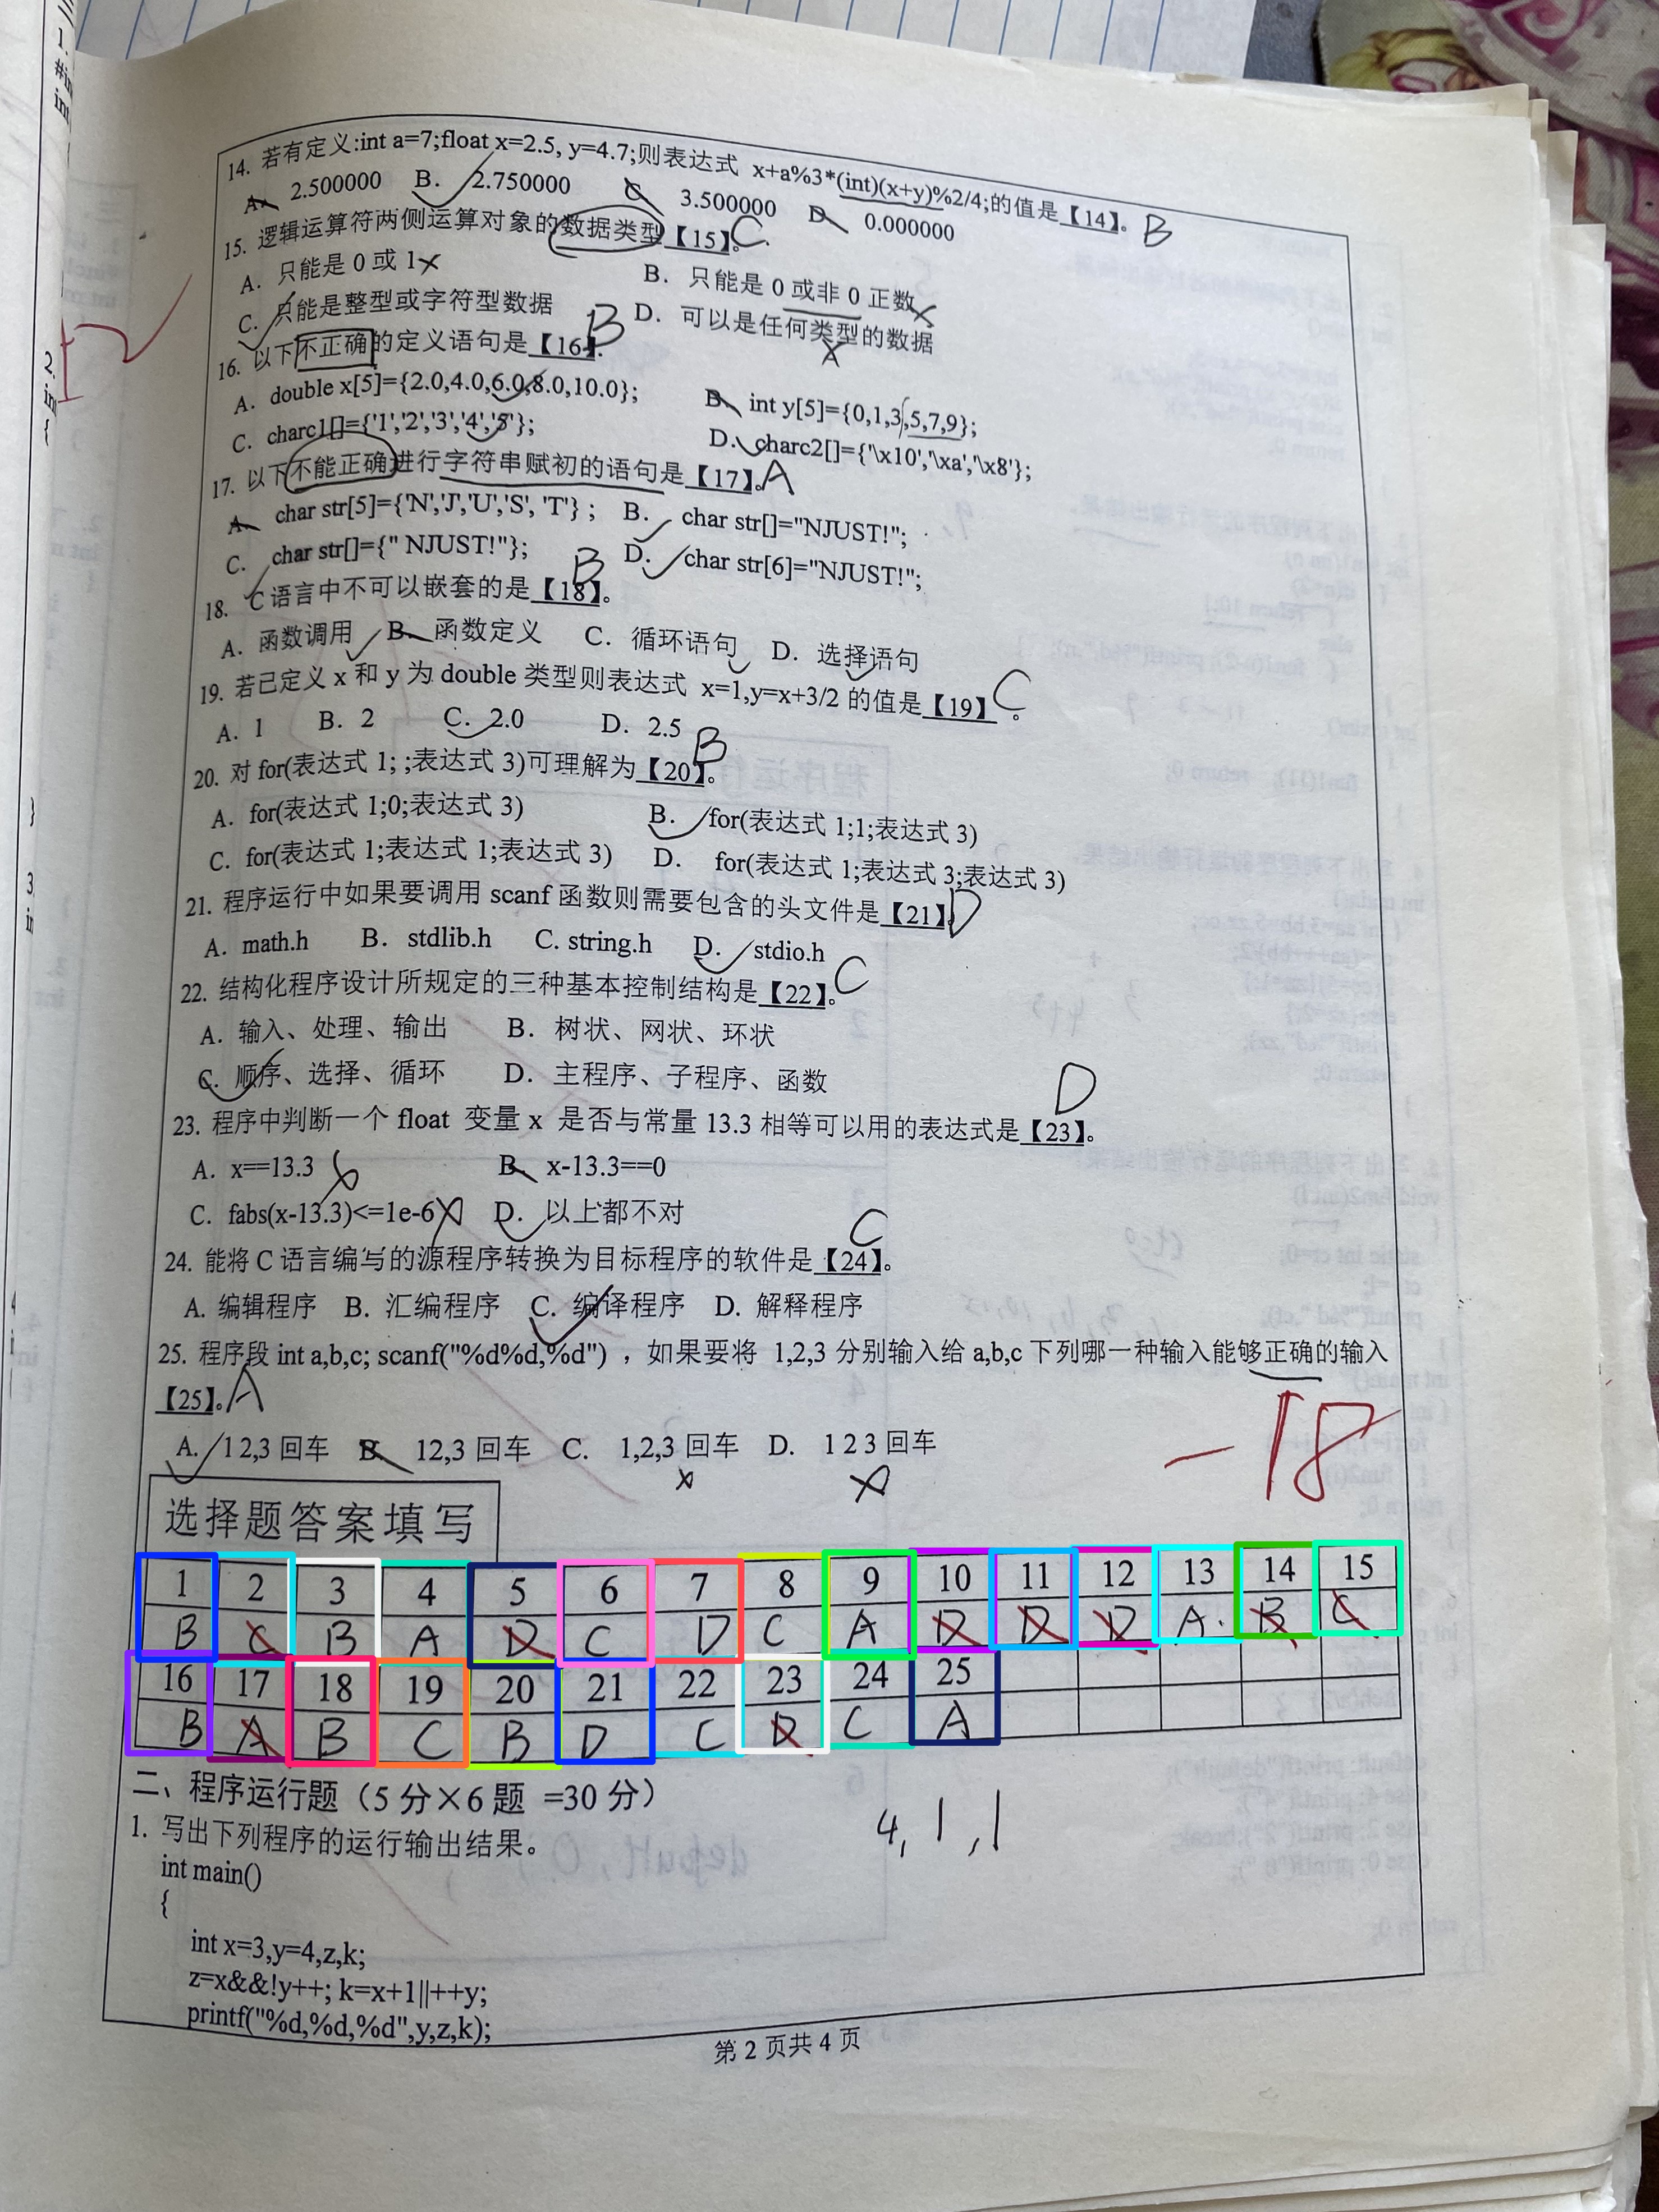 14. 若有定义:int a=7;float x=2.5, y=4.7;则表达式 x+a%3*(int)(x+y)%2/4;的值是【14】。 B
A. 2.500000 B. 2.750000 C. 3.500000 D. 0.000000
15. 逻辑运算符两侧运算对象的数据类型【15】。 C
A. 只能是 0 或 1 B. 只能是 0 或非 0 正数
C. 只能是整型或字符型数据 D. 可以是任何类型的数据
16. 以下不正确的定义语句是【16】. B
A. double x[5]={2.0,4.0,6.0,8.0,10.0}; B. int y[5]={0,1,3,5,7,9};
C. charc1[]={'1','2','3','4','5'}; D. charc2[]={'\x10','\xa','\x8'};
17. 以下不能正确进行字符串赋初的语句是【17】。 A
A. char str[5]={'N','J','U','S', 'T'} ; B. char str[]="NJUST!";
C. char str[]={" NJUST!"}; D. char str[6]="NJUST!";
18. C 语言中不可以嵌套的是【18】。 B
A. 函数调用 B. 函数定义 C. 循环语句 D. 选择语句
19. 若已定义 x 和 y 为 double 类型则表达式 x=1,y=x+3/2 的值是【19】。 C
A. 1 B. 2 C. 2.0 D. 2.5
20. 对 for(表达式 1; ;表达式 3)可理解为【20】。 B
A. for(表达式 1;0;表达式 3) B. for(表达式 1;1;表达式 3)
C. for(表达式 1;表达式 1;表达式 3) D. for(表达式 1;表达式 3;表达式 3)
21. 程序运行中如果要调用 scanf 函数则需要包含的头文件是【21】。 D
A. math.h B. stdlib.h C. string.h D. stdio.h
22. 结构化程序设计所规定的三种基本控制结构是【22】。 C
A. 输入、处理、输出 B. 树状、网状、环状
C. 顺序、选择、循环 D. 主程序、子程序、函数
23. 程序中判断一个 float 变量 x 是否与常量 13.3 相等可以用的表达式是【23】。 D
A. x==13.3 B. x-13.3==0
C. fabs(x-13.3)<=1e-6 D. 以上都不对
24. 能将 C 语言编写的源程序转换为目标程序的软件是【24】。 C
A. 编辑程序 B. 汇编程序 C. 编译程序 D. 解释程序
25. 程序段 int a,b,c; scanf("%d%d,%d") ，如果要将 1,2,3 分别输入给 a,b,c 下列哪一种输入能够正确的输入
【25】。 A
A. 1 2,3 回车 B. 12,3 回车 C. 1,2,3 回车 D. 1 2 3 回车
-18
选择题答案填写
1 2 3 4 5 6 7 8 9 10 11 12 13 14 15
B C B A D C D C A D D D A. B C
16 17 18 19 20 21 22 23 24 25
B A B C B D C D C A
二、程序运行题（5 分×6 题 =30 分）
1. 写出下列程序的运行输出结果。
4, 1, 1
int main()
{
int x=3,y=4,z,k;
z=x&&!y++; k=x+1||++y;
printf("%d,%d,%d",y,z,k);
第 2 页共 4 页